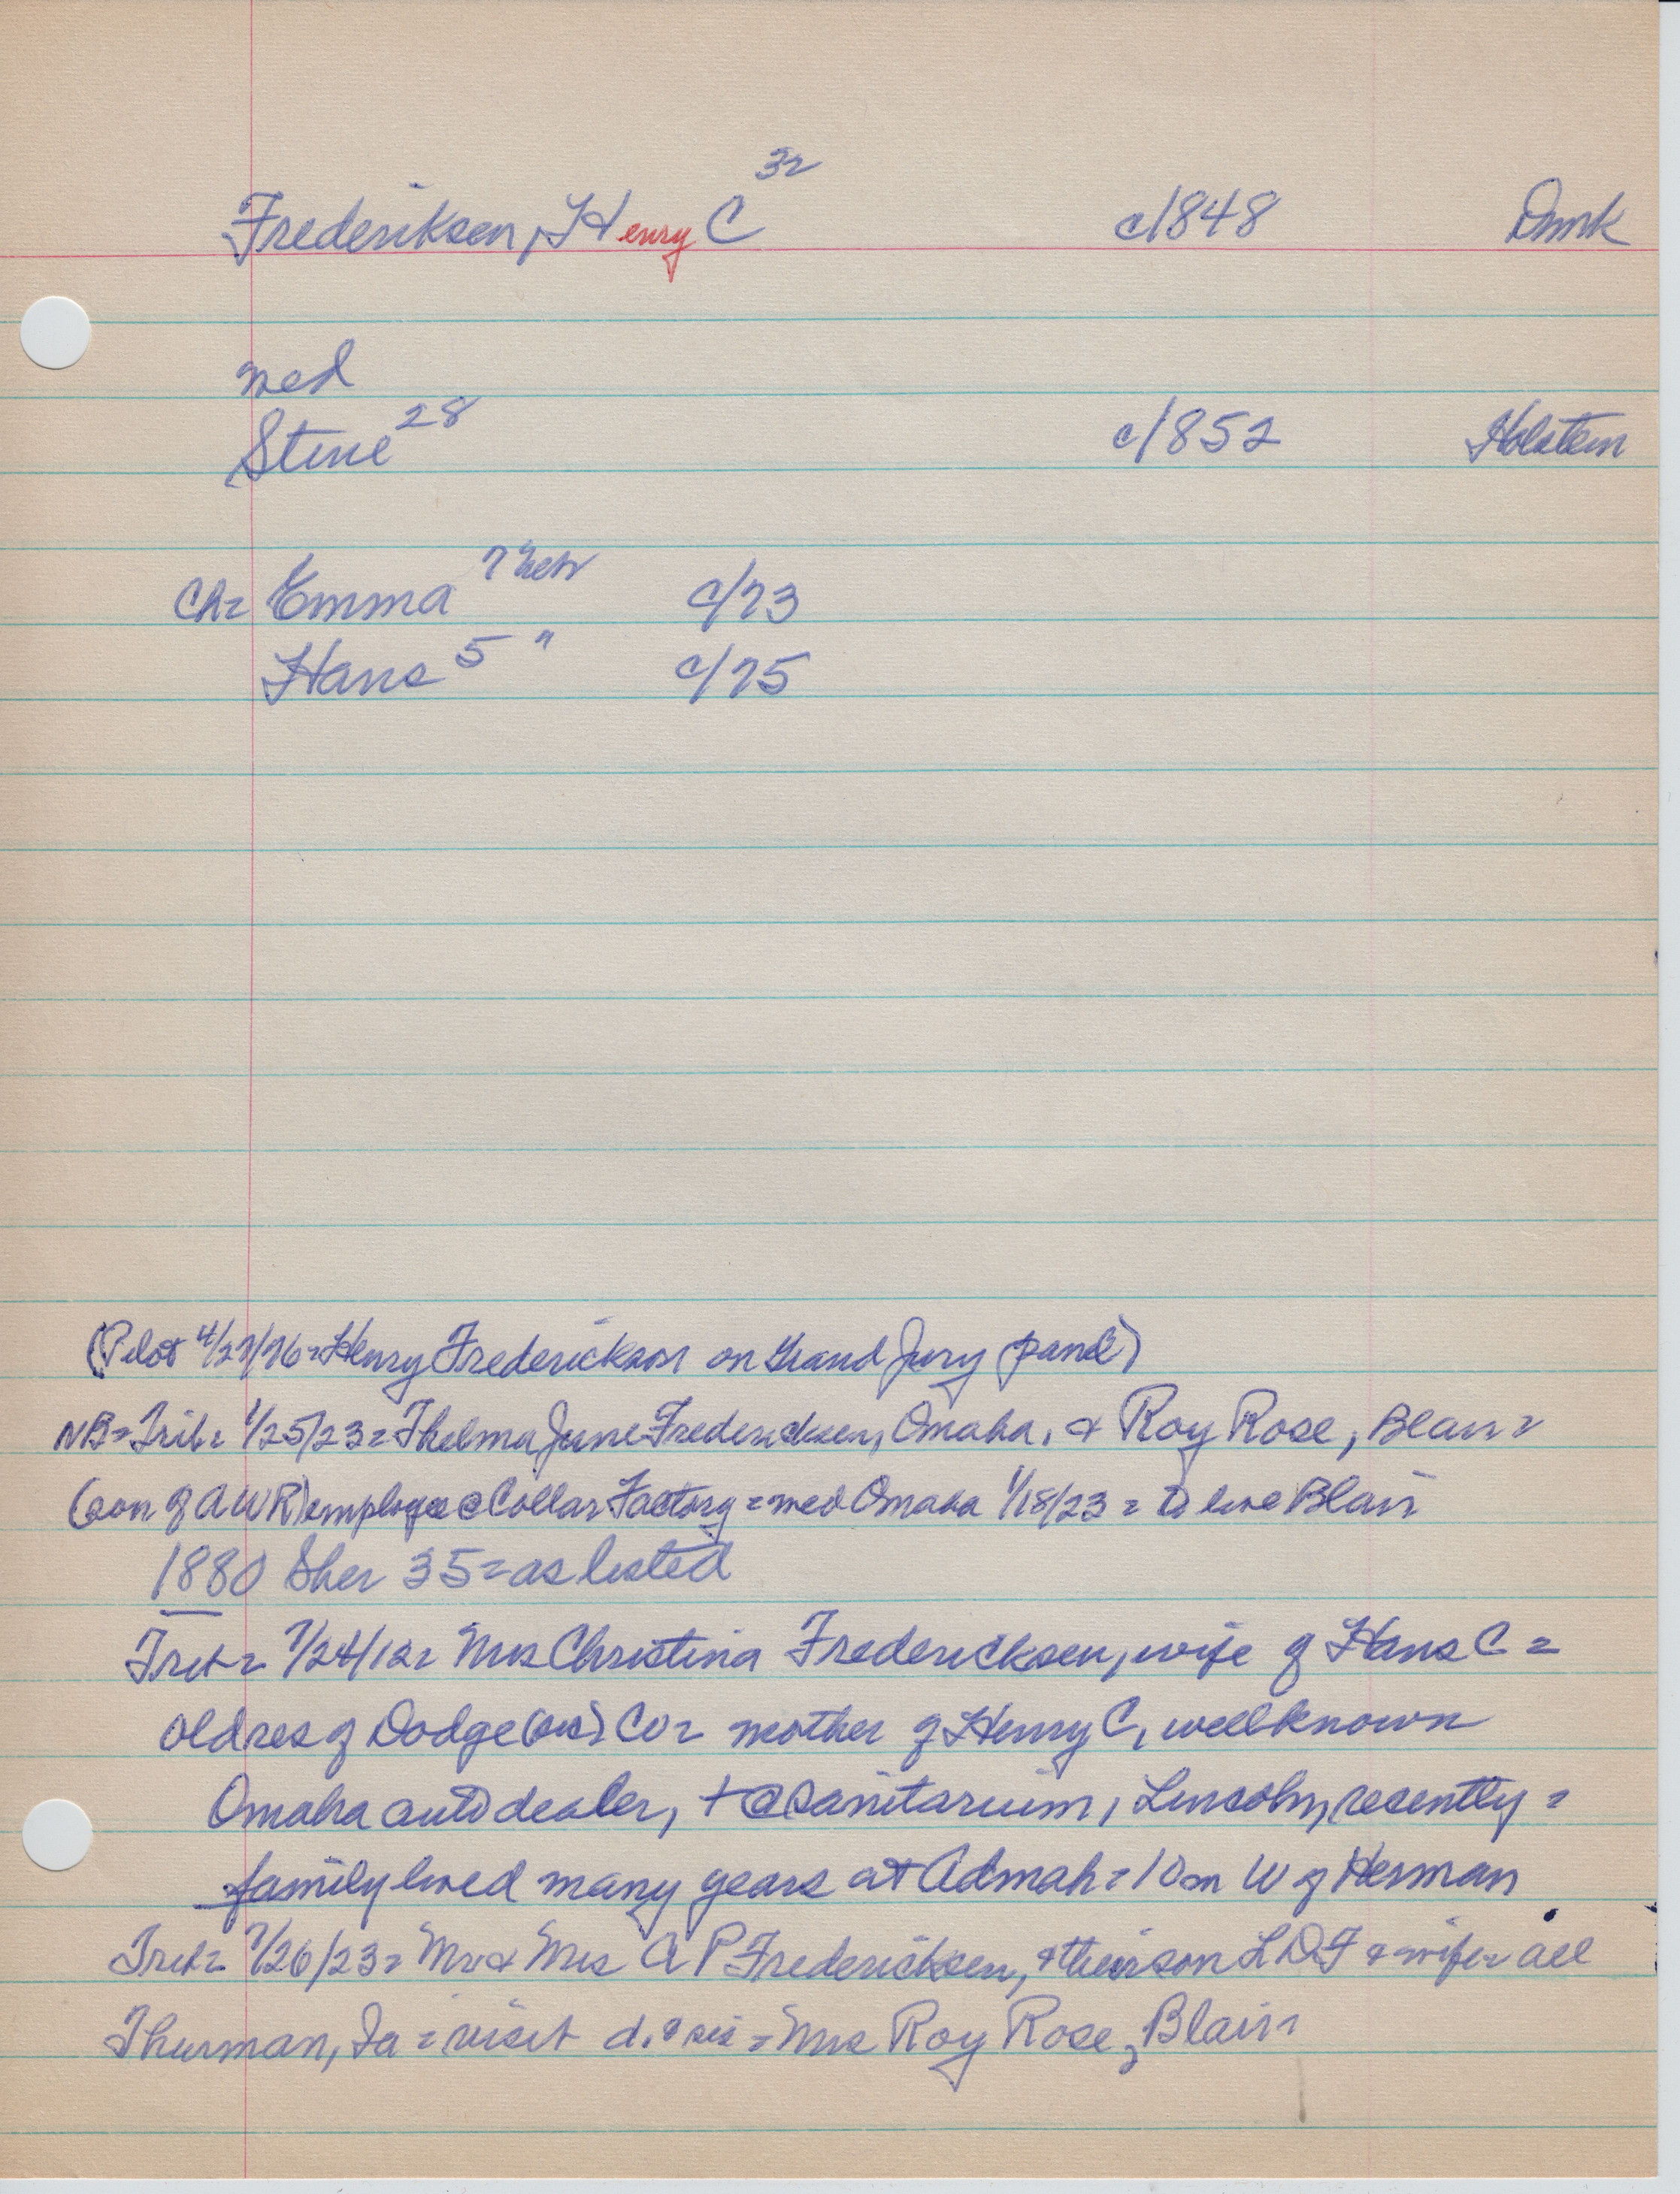 Frederiksen, Henry C 32 c/1848 Dmrk
med
Stine 28 c/1852 Holstein
Ch= Emma 7 Nebr c/73
Hans 5 " c/75
(Pilot 4/27/76=Henry Frederickson on Grand Jury panel)
NB=Trib= 1/25/23=Thelma June Fredericksen, Omaha, & Roy Rose, Blair=
(son of AWR) employee @ Collar Factory=med Omaha 1/18/23=to live Blair
1880 Sher 35=as listed
Trib= 7/24/12= Mrs Christina Fredericksen, wife of Hans C=
old res of Dodge (sic) Co= mother of Henry C, wellknown
Omaha auto dealer, + @ sanitarium, Lincoln, resently=
family lived many years at Admah=10m W of Herman
Trib= 7/26/23= Mr & Mrs A P Fredericksen, & their son L D F & wife= all
Thurman, Ia=visit d. & sis=Mrs Roy Rose, Blair=